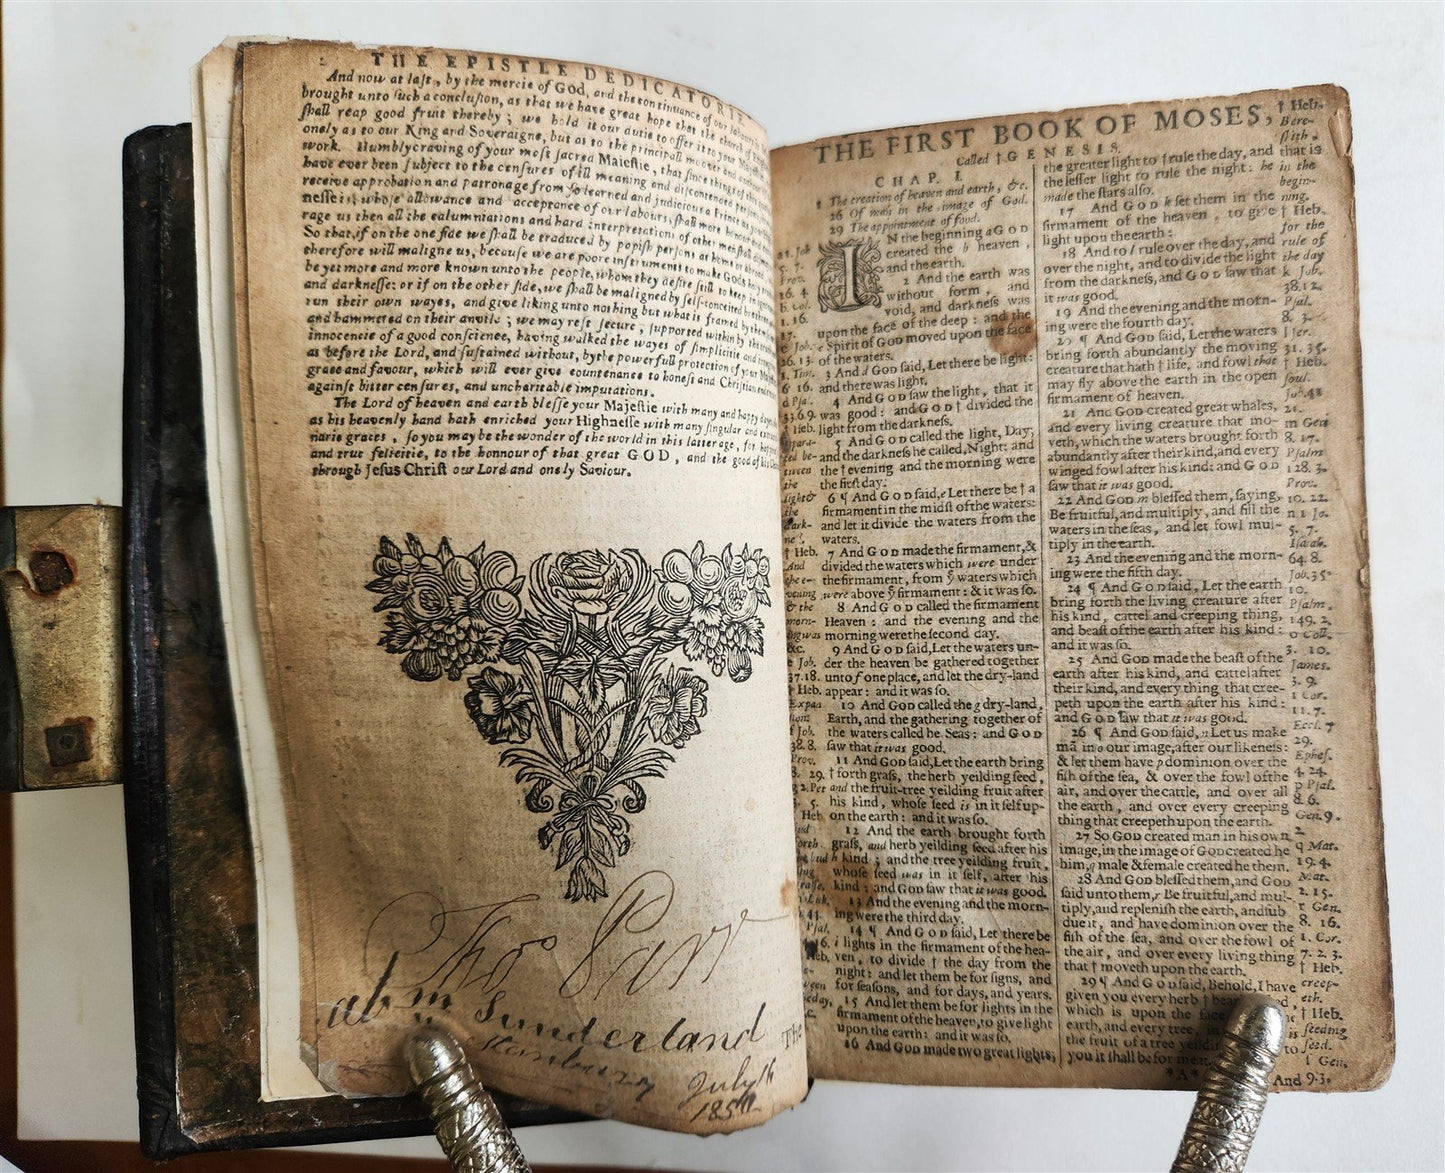 THE EPISTLE DEDICATORIE.
And now at laſt, by the mercie of God, and the continuance of our labours
brought unto ſuch a concluſion, as that we have great hope that the church of
ſhall reap good fruit thereby; we hold it our dutie to offer it to your
onely as to our King and Soveraigne, but as to the principall moover and
work. Humbly craving of your moſt ſacred Majeſtie, that ſince things of this
have ever been ſubject to the cenſures of ill meaning and diſcontented perſons,
receive approbation and patronage from ſo learned and judicious a Prince as your
neſſe is, whoſe allowance and acceptance of our labours, ſhall more honour and
rage us then all the calumniations and hard interpretations of other men ſhall
So that, if on the one ſide we ſhall be traduced by popiſh perſons at home or abroad,
therefore will maligne us, becauſe we are poore inſtruments to make Gods holy
be yet more and more known unto the people, whom they deſire ſtill to keep in
and darkneſſe: or if on the other ſide, we ſhall be maligned by ſelf-conceited
run their own wayes, and give liking unto nothing but what is framed by
and hammered on their anvile; we may reſt ſecure, ſupported within by the
innocencie of a good conſcience, having walked the wayes of ſimplicitie and
as before the Lord, and ſuſtained without, by the powerfull protection of your
grace and favour, which will ever give countenance to honeſt and Chriſtian
againſt bitter cenſures, and uncharitable imputations.
The Lord of heaven and earth bleſſe your Majeſtie with many and happy
as his heavenly hand hath enriched your Highneſſe with many ſingular and
narie graces, ſo you may be the wonder of the world in this latter age, for
and true felicitie, to the honour of that great GOD, and the good of his
through Jeſus Chriſt our Lord and onely Saviour.
Tho Parr
abm Sunderland
July 16
THE FIRST BOOK OF MOSES,
Called † GENESIS.
CHAP. I.
1 The creation of heaven and earth, &c.
26 Of man in the image of God.
29 The appointment of food.
IN the beginning a GOD
created the b heaven,
and the earth.
2 And the earth was
without form, and
void, and darkneſs was
upon the face of the deep: and the
c Spirit of GOD moved upon the face
of the waters.
3 And d GOD ſaid, Let there be light:
and there was light.
4 And GOD ſaw the light, that it
was good: and GOD † divided the
light from the darkneſs.
5 And GOD called the light, Day;
and the darkneſs he called, Night: and
the † evening and the morning were
the firſt day.
6 ¶ And GOD ſaid, e Let there be † a
firmament in the midſt of the waters:
and let it divide the waters from the
waters.
7 And GOD made the firmament, &
divided the waters which were under
the firmament, from ỹ waters which
were above ỹ firmament: & it was ſo.
8 And GOD called the firmament
Heaven: and the evening and the
morning were the ſecond day.
9 And GOD ſaid, Let the waters un-
der the heaven be gathered together
unto f one place, and let the dry-land
appear: and it was ſo.
10 And GOD called the g dry-land,
Earth, and the gathering together of
the waters called he Seas: and GOD
ſaw that it was good.
11 And GOD ſaid, Let the earth bring
† forth graſs, the herb yeilding ſeed,
and the fruit-tree yeilding fruit after
his kind, whoſe ſeed is in it ſelf up-
on the earth: and it was ſo.
12 And the earth brought forth
graſs, and herb yeilding ſeed after his
h kind; and the tree yeilding fruit,
whoſe ſeed was in it ſelf, after his
kind: and GOD ſaw that it was good.
13 And the evening and the morn-
ing were the third day.
14 ¶ And GOD ſaid, Let there be
i lights in the firmament of the hea-
ven, to divide † the day from the
night: and let them be for ſigns, and
for ſeaſons, and for days, and years.
15 And let them be for lights in the
firmament of the heaven, to give light
upon the earth: and it was ſo.
16 And GOD made two great lights;
the greater light to † rule the day, and
the leſſer light to rule the night: he
made the ſtars alſo.
17 And GOD k ſet them in the
firmament of the heaven, to give
light upon the earth:
18 And to l rule over the day, and
over the night, and to divide the light
from the darkneſs, and GOD ſaw that
it was good.
19 And the evening and the morn-
ing were the fourth day.
20 ¶ And GOD ſaid, Let the waters
bring forth abundantly the moving
creature that hath † life, and fowl that
may fly above the earth in the open
firmament of heaven.
21 And GOD created great whales,
and every living creature that mo-
veth, which the waters brought forth
abundantly after their kind, and every
winged fowl after his kind: and GOD
ſaw that it was good.
22 And GOD m bleſſed them, ſaying,
Be fruitful, and multiply, and fill the
waters in the ſeas, and let fowl mul-
tiply in the earth.
23 And the evening and the morn-
ing were the fifth day.
24 ¶ And GOD ſaid, Let the earth
bring forth the living creature after
his kind, cattel and creeping thing,
and beaſt of the earth after his kind:
and it was ſo.
25 And GOD made the beaſt of the
earth after his kind, and cattel after
their kind, and every thing that cree-
peth upon the earth after his kind:
and GOD ſaw that it was good.
26 ¶ And GOD ſaid, n Let us make
mã in o our image, after our likeneſs:
& let them have p dominion over the
fiſh of the ſea, & over the fowl of the
air, and over the cattle, and over all
the earth, and over every creeping
thing that creepeth upon the earth.
27 So GOD created man in his own
image, in the image of GOD created he
him, q male & female created he them.
28 And GOD bleſſed them, and GOD
ſaid unto them, r Be fruitful, and mul-
tiply, and repleniſh the earth, and ſub
due it, and have dominion over the
fiſh of the ſea, and over the fowl of
the air, and over every living thing
that † moveth upon the earth.
29 ¶ And GOD ſaid, Behold, I have
given you every herb †
which is upon the face
earth, and every tree, in
the fruit of a tree yeildi to
you it ſhall be for meat.
*A*
And 9.3.
† Heb.
Bere-
ſhith.
that is
in the
begin-
ning.
† Heb.
for the
rule of
the day
k Job.
38.12.
Pſal.
8. 3.
l Jer.
31. 35.
† Heb.
ſoul.
21.
m Gen
8. 17.
Pſalm
128. 3.
Prov.
10. 22.
n 1 Jo.
5. 7.
Iſaiah.
64. 8.
Job. 35.
10.
Pſalm.
149. 2.
o Coll.
3. 10.
James.
3. 9.
1 Cor.
11. 7.
Eccl. 7
29.
Epheſ.
4. 24.
p Pſal.
8. 6.
Gen. 9.
2
q Mat.
19. 4.
Mat.
2. 15.
r Gen.
8. 16.
1. Cor.
7. 2. 3.
† Heb.
creep-
eth.
† Heb.
ſeeding
ſeed.
ſ Gen.